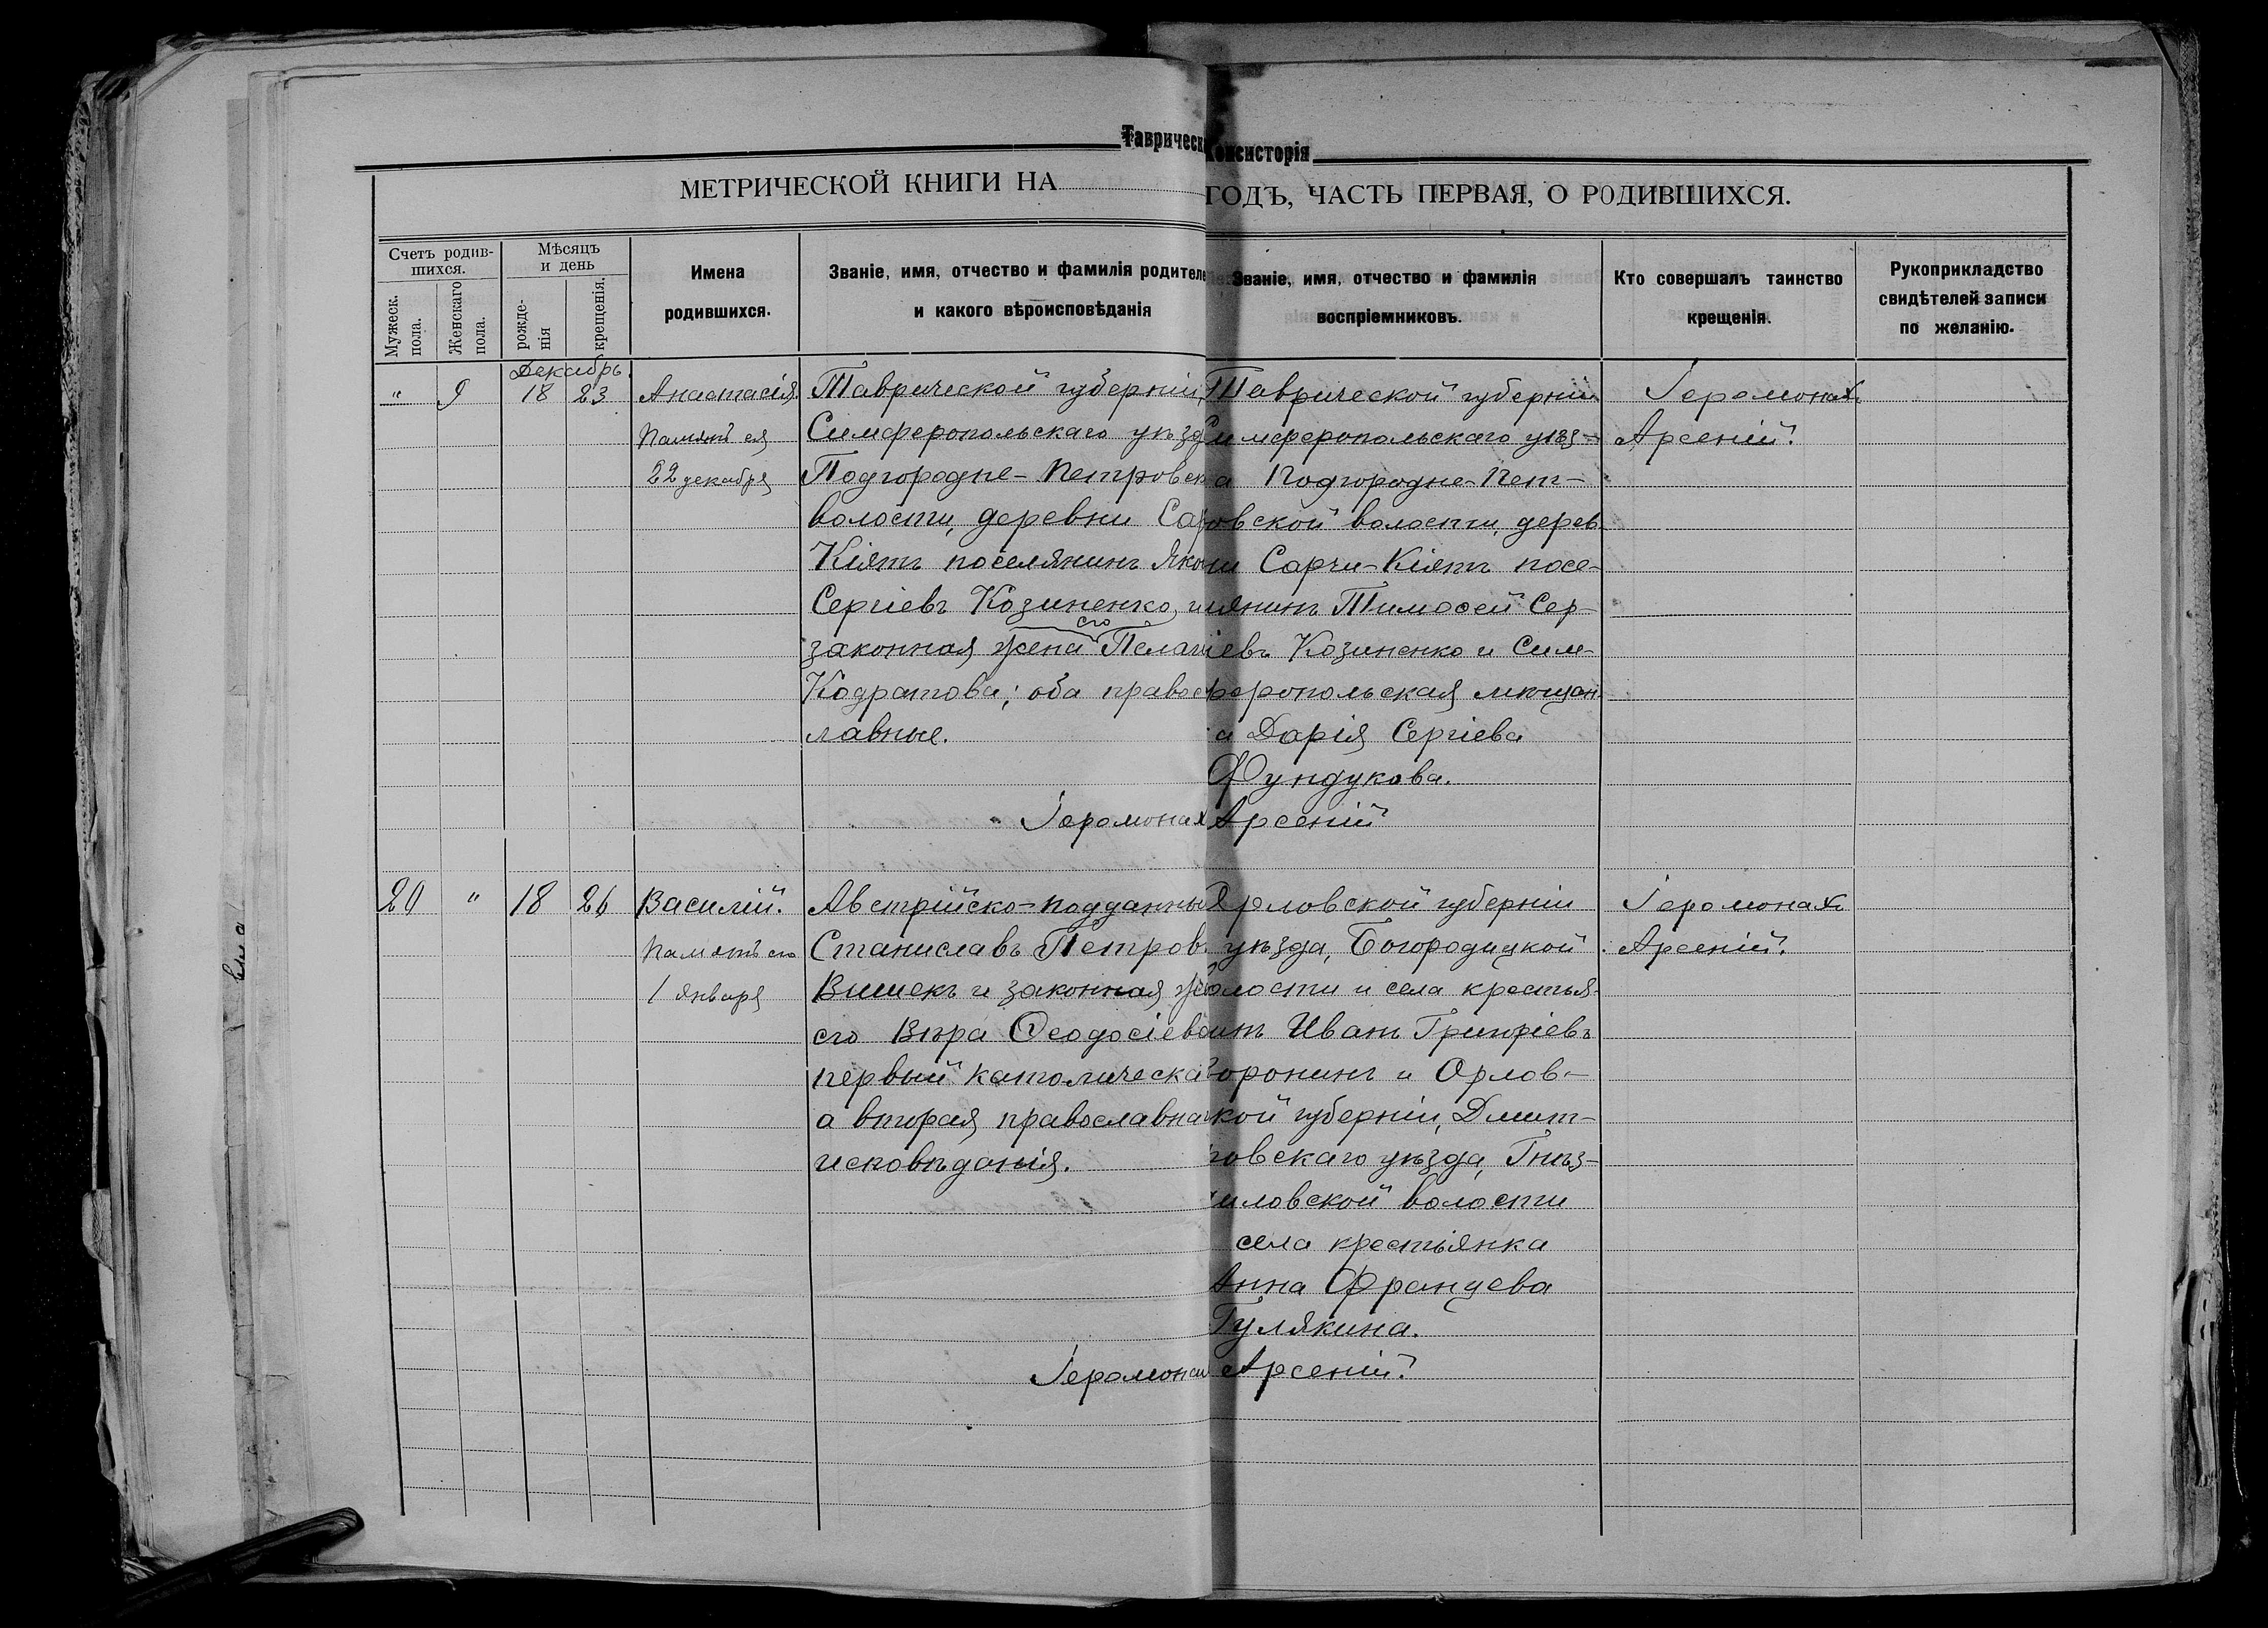 Таврическ
Консисторія
МЕТРИЧЕСКОЙ КНИГИ НА
ГОДЪ, ЧАСТЬ ПЕРВАЯ, О РОДИВШИХСЯ.
Счетъ родив-
шихся.
Мужеск.
пола.
Женскаго
пола.
Мѣсяцъ
и день
рожде-
нія
крещенія.
Имена
родившихся.
Званіе, имя, отчество и фамилія родителе
и какого вѣроисповѣданія
Званіе, имя, отчество и фамилія
воспріемниковъ.
Кто совершалъ таинство
крещенія.
Рукоприкладство
свидѣтелей записи
по желанію.
Декабрь.
" 9 18 23
Анастасія.
Память ея
22 декабря
Таврической губерніи,
Симферопольскаго уѣзд
Подгородне-Петровск
волости, деревни Сар
Кіятъ поселянинъ Яко
Сергіевъ Козиненко, и
законная его жена Пелаг
Кодратова; оба правос
лавные.
Таврической губерніи
Симферопольскаго уѣз-
а Подгородне-Пет-
ровской волости, дерев-
ни Сарчи-Кіятъ посе-
лянинъ Тимоѳей Сер-
гіевъ Козиненко и Сим-
феропольская мѣщан-
ка Дарія Сергіева
Фундукова.
Іеромонахъ
Арсеній.
Іеромонах Арсеній
20 " 18 26
Василій.
Память его
1 января
Австрійско-подданны
Станиславъ Петров
Вишекъ и законная же
его Вѣра Ѳеодосіева
первый католическа
а вторая православна
исповѣданія.
Орловской губерніи
уѣзда, Богородицкой
волости и села крестья-
нинъ Иванъ Григоріевъ
Воронинъ и Орлов-
ской губерніи, Дмит-
ровскаго уѣзда, Гнѣз-
диловской волости
села крестьянка
Анна Францева
Гулякина.
Іеромонахъ
Арсеній.
Іеромонах Арсеній.